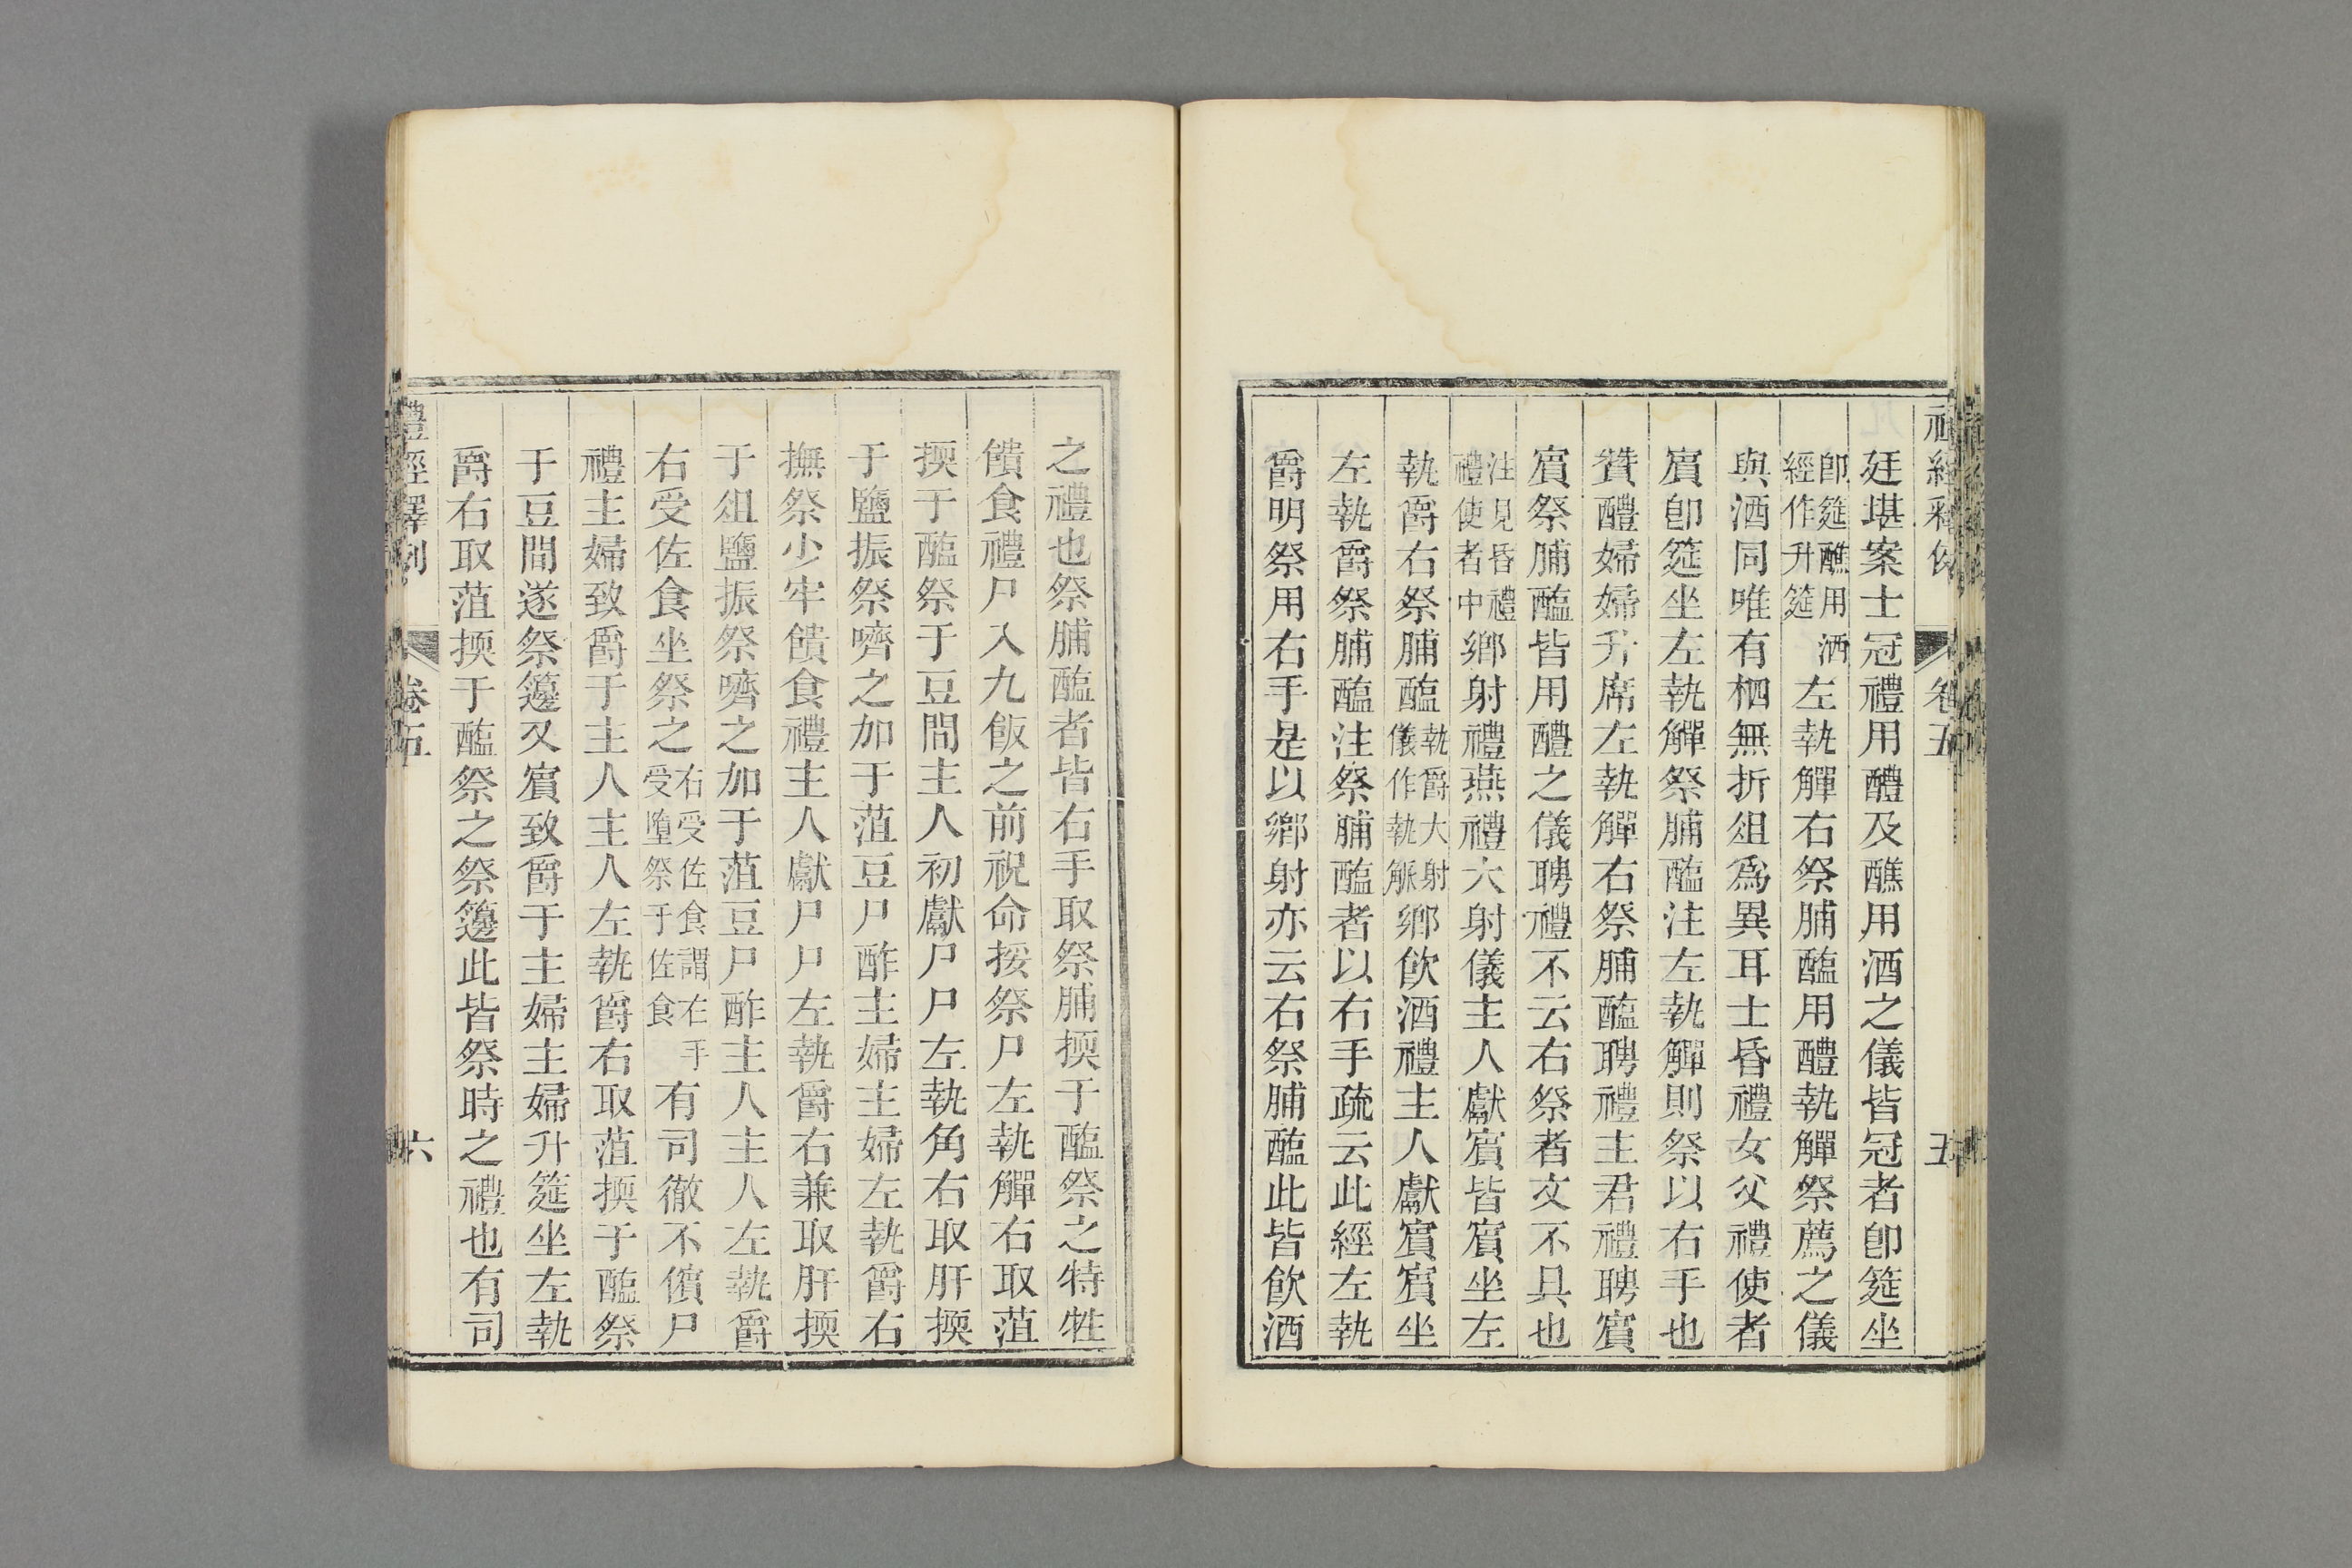 廷堪案士冠禮用醴及醮用酒之儀皆冠者卽筵坐
卽筵醮用酒經作升筵左執觶右祭脯醢用醴執觶祭薦之儀
與酒同唯有栖無折俎爲異耳士昏禮女父禮使者
賔卽筵坐左執觶祭脯醢注左執觶則祭以右手也
贊醴婦婦升席左執觶右祭脯醢聘禮主君禮聘賔
賔祭脯醢皆用醴之儀聘禮不云右祭者文不具也
注見昏禮禮使者中鄉射禮燕禮大射儀主人獻賔皆賔坐左
執爵右祭脯醢執爵大射儀作執觚鄉飲酒禮主人獻賔賔坐
左執爵祭脯醢注祭脯醢者以右手疏云此經左執
爵明祭用右手是以鄉射亦云右祭脯醢此皆飲酒
之禮也祭脯醢者皆右手取祭脯擩于醢祭之特牲
饋食禮尸入九飯之前祝命挼祭尸左執觶右取菹
擩于醢祭于豆間主人初獻尸尸左執角右取肝擩
于鹽振祭嚌之加于菹豆尸酢主婦主婦左執爵右
撫祭少牢饋食禮主人獻尸尸左執爵右兼取肝擩
于俎鹽振祭嚌之加于菹豆尸酢主人主人左執爵
右受佐食坐祭之右受佐食謂右手受墮祭于佐食有司徹不儐尸
禮主婦致爵于主人主人左執爵右取菹擩于醢祭
于豆間遂祭籩又賔致爵于主婦主婦升筵坐左執
爵右取菹擩于醢祭之祭籩此皆祭時之禮也有司
禮經釋例 卷五 六